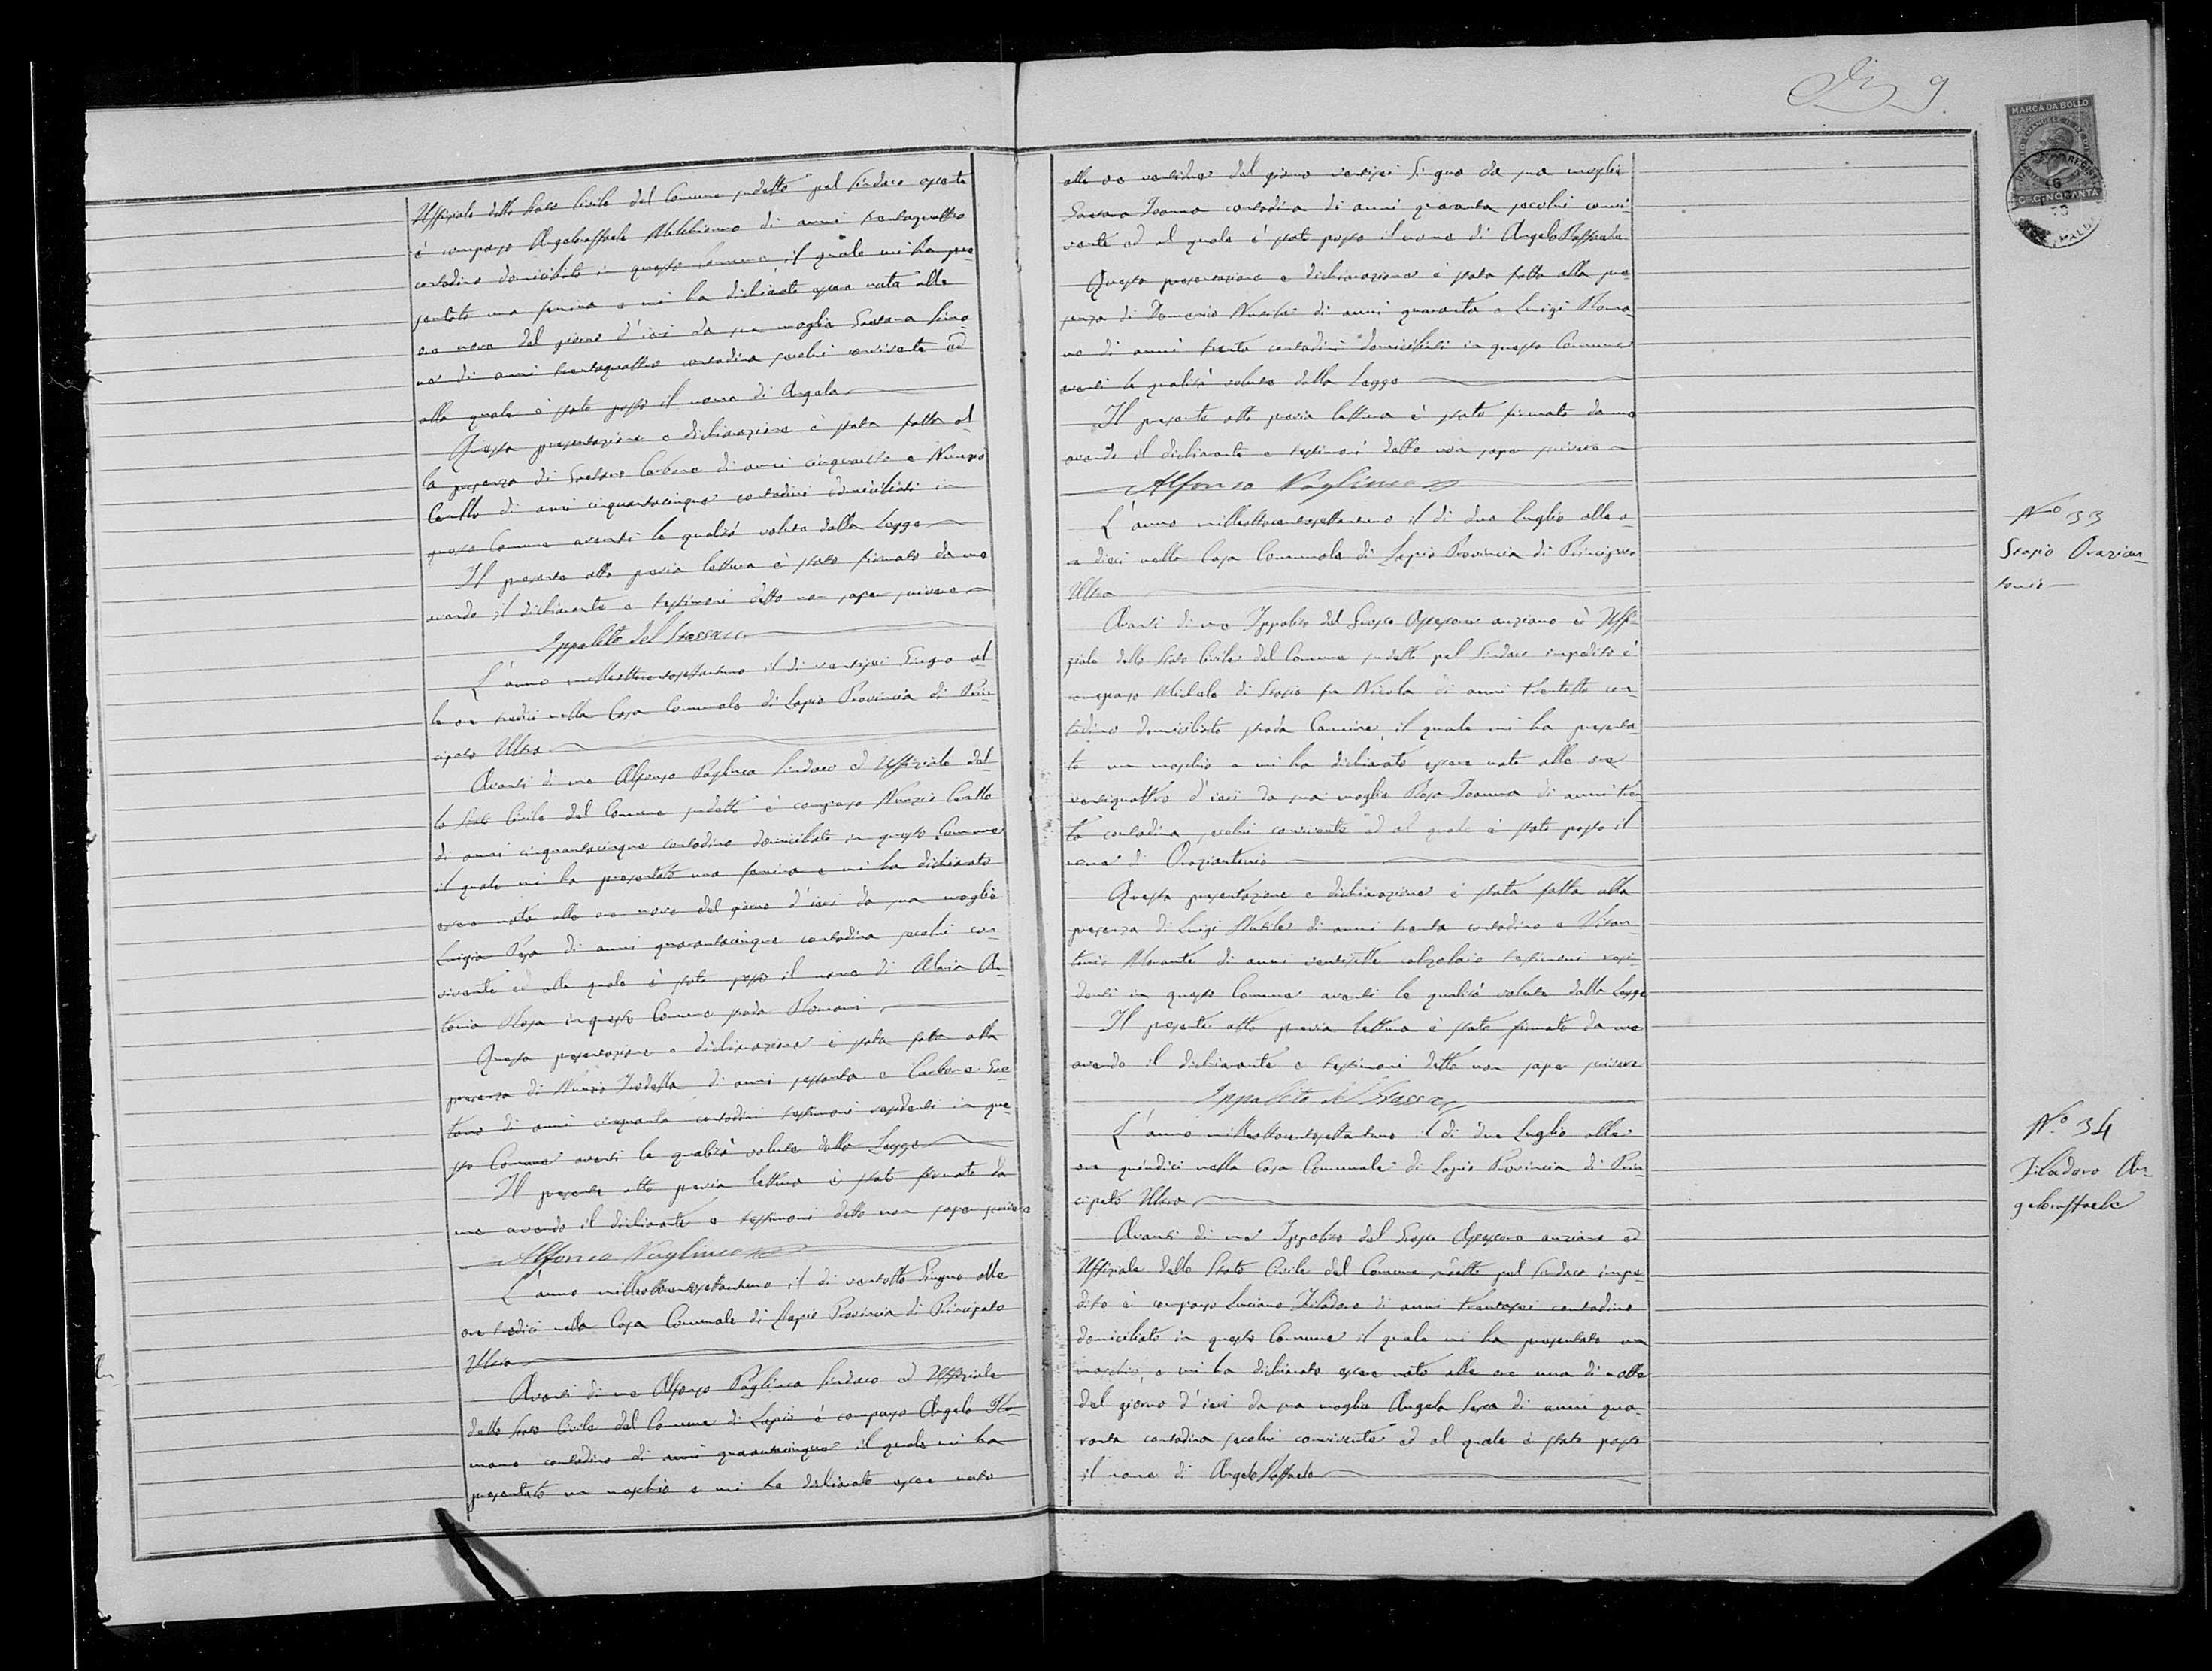 Uffiziale dello Stato Civile del Comune sudetto pel Sindaco assente
è comparso Angeloraffaele Melchionno di anni trentaquattro
contadino domiciliato in questo Comune, il quale mi ha pre
sentato una femina e mi ha dichiarato essere nata alle
ore nove del giorno d'ieri da sua moglie Gaetana
di anni trentaquattro contadina secolui convivente ed
alla quale è stato posto il nome di Angela
Questa presentazione e dichiarazione è stata fatta al
la presenza di Gaetano Carbone di anni cinquanta e Nunzio
di anni cinquantacinque contadini domiciliati in
questo Comune aventi le qualità volute dalla Legge
Il presente atto previa lettura è stato firmato da me
avendo il dichiarante e testimoni detto non saper scrivere
Ippolito del Grosso
L'anno milleottocentosettantuno il dì ventisei Giugno al
le ore tredici nella Casa Comunale di Lapio Provincia di Prin
cipato Ultra
Avanti di me Alfonso Paglinca Sindaco ed Uffiziale del
lo Stato Civile del Comune sudetto è comparso Nunzio
di anni cinquantacinque contadino domiciliato in questo Comune
il quale mi ha presentato una femina e mi ha dichiarato
essere nata alle ore nove del giorno d'ieri da sua moglie
Luigia di anni quarantacinque contadina secolui con
vivente ed alla quale è stato posto il nome di Maria An
tonia Rosa in questo Comune strada Romani
Questa presentazione e dichiarazione è stata fatta alla
presenza di Nunzio di anni sessanta e Carbone Gae
tano di anni cinquanta contadini testimoni residenti in que
sto Comune aventi le qualità volute dalla Legge
Il presente atto previa lettura è stato firmato da
me avendo il dichiarante e testimoni detto non saper scrivere
Alfonso Paglinca
L'anno milleottocentosettantuno il dì ventotto Giugno alle
ore tredici nella Casa Comunale di Lapio Provincia di Principato
Ultra
Avanti di me Alfonso Paglinca Sindaco ed Uffiziale
dello Stato Civile del Comune di Lapio è comparso Angelo Ro
mano contadino di anni quarantacinque il quale mi ha
presentato un maschio e mi ha dichiarato essere nato
9
MARCA DA BOLLO
C. CINQUANTA
alle ore ventidue del giorno ventisei Giugno da sua moglie
Gaetana Joanna contadina di anni quaranta secolui convi
vente ed al quale è stato posto il nome di Angelo Raffaele
Questa presentazione e dichiarazione è stata fatta alla pre
senza di Domenico di anni quaranta e Luigi Roma
no di anni trenta contadini domiciliati in questo Comune
aventi le qualità volute dalla Legge
Il presente atto previa lettura è stato firmato da me
avendo il dichiarante e testimoni detto non saper scrivere
Alfonso Paglinca
L'anno milleottocentosettantuno il dì due Luglio alle o
re dieci nella Casa Comunale di Lapio Provincia di Principato
Ultra
Avanti di me Ippolito del Grosso Assessore anziano ed Uffi
ziale dello Stato Civile del Comune sudetto pel Sindaco impedito è
comparso Michele di Stasio fu Nicola di anni trentotto con
tadino domiciliato strada Carmine, il quale mi ha presenta
to un maschio e mi ha dichiarato essere nato alle ore
ventiquattro d'ieri da sua moglie Rosa Joanna di anni tren
ta contadina secolui convivente ed al quale è stato posto il
nome di Oraziantonio
Questa presentazione e dichiarazione è stata fatta alla
presenza di Luigi di anni trenta contadino e Vitan
tonio Morante di anni ventisette calzolaio testimoni resi
denti in questo Comune aventi le qualità volute dalla Legge
Il presente atto previa lettura è stato firmato da me
avendo il dichiarante e testimoni detto non saper scrivere
Ippolito del Grosso
L'anno milleottocentosettantuno il dì due Luglio alle
ore quindici nella Casa Comunale di Lapio Provincia di Prin
cipato Ultra
Avanti di me Ippolito del Grosso Assessore anziano ed
Uffiziale dello Stato Civile del Comune sudetto pel Sindaco impe
dito è comparso Luciano Filadoro di anni trentasei contadino
domiciliato in questo Comune il quale mi ha presentato un
maschio, e mi ha dichiarato essere nato alle ore una di notte
del giorno d'ieri da sua moglie Angela di anni qua
ranta contadina secolui convivente ed al quale è stato posto
il nome di Angelo Raffaele
No 33
Stasio Orazian
tonio
No 34
Filadoro An
geloraffaele